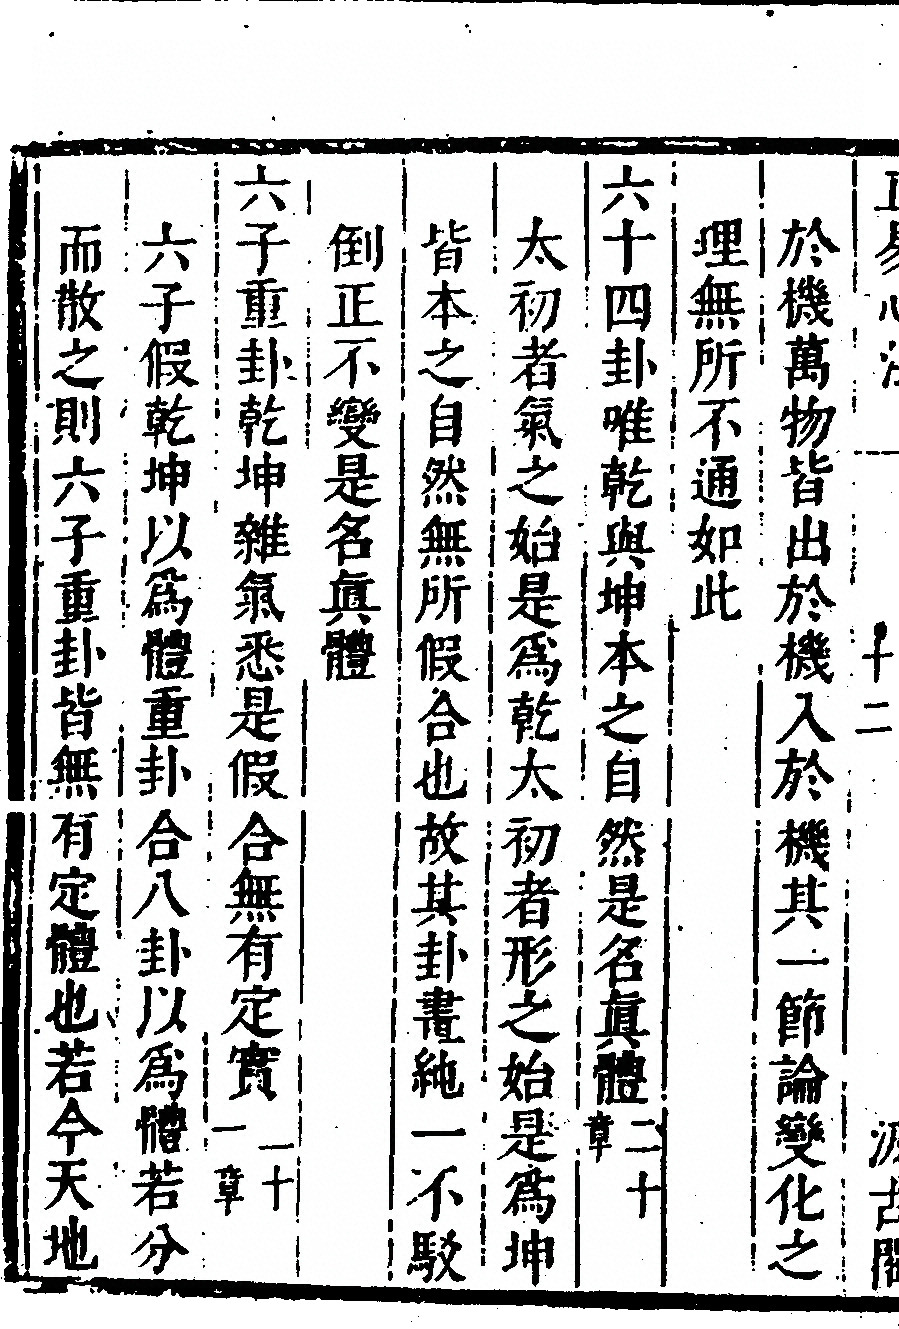 正易心法 十二 汲古閣
於機萬物皆出於機入於機其一節論變化之
理無所不通如此
六十四卦唯乾與坤本之自然是名眞體二十章
太初者氣之始是爲乾太初者形之始是爲坤
皆本之自然無所假合也故其卦畫純一不駁
倒正不變是名眞體
六子重卦乾坤雜氣悉是假合無有定實一十一章
六子假乾坤以爲體重卦合八卦以爲體若分
而散之則六子重卦皆無有定體也若今天地